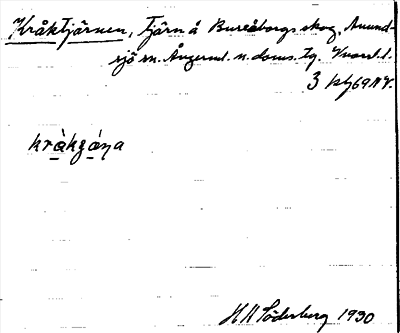 Kråktjärnen, tjärn å Bureåborgs skog, Anund-
sjö sn. Ångerml. n. doms. tg.
3
kràkʒáɳa
H H Söderberg 1930